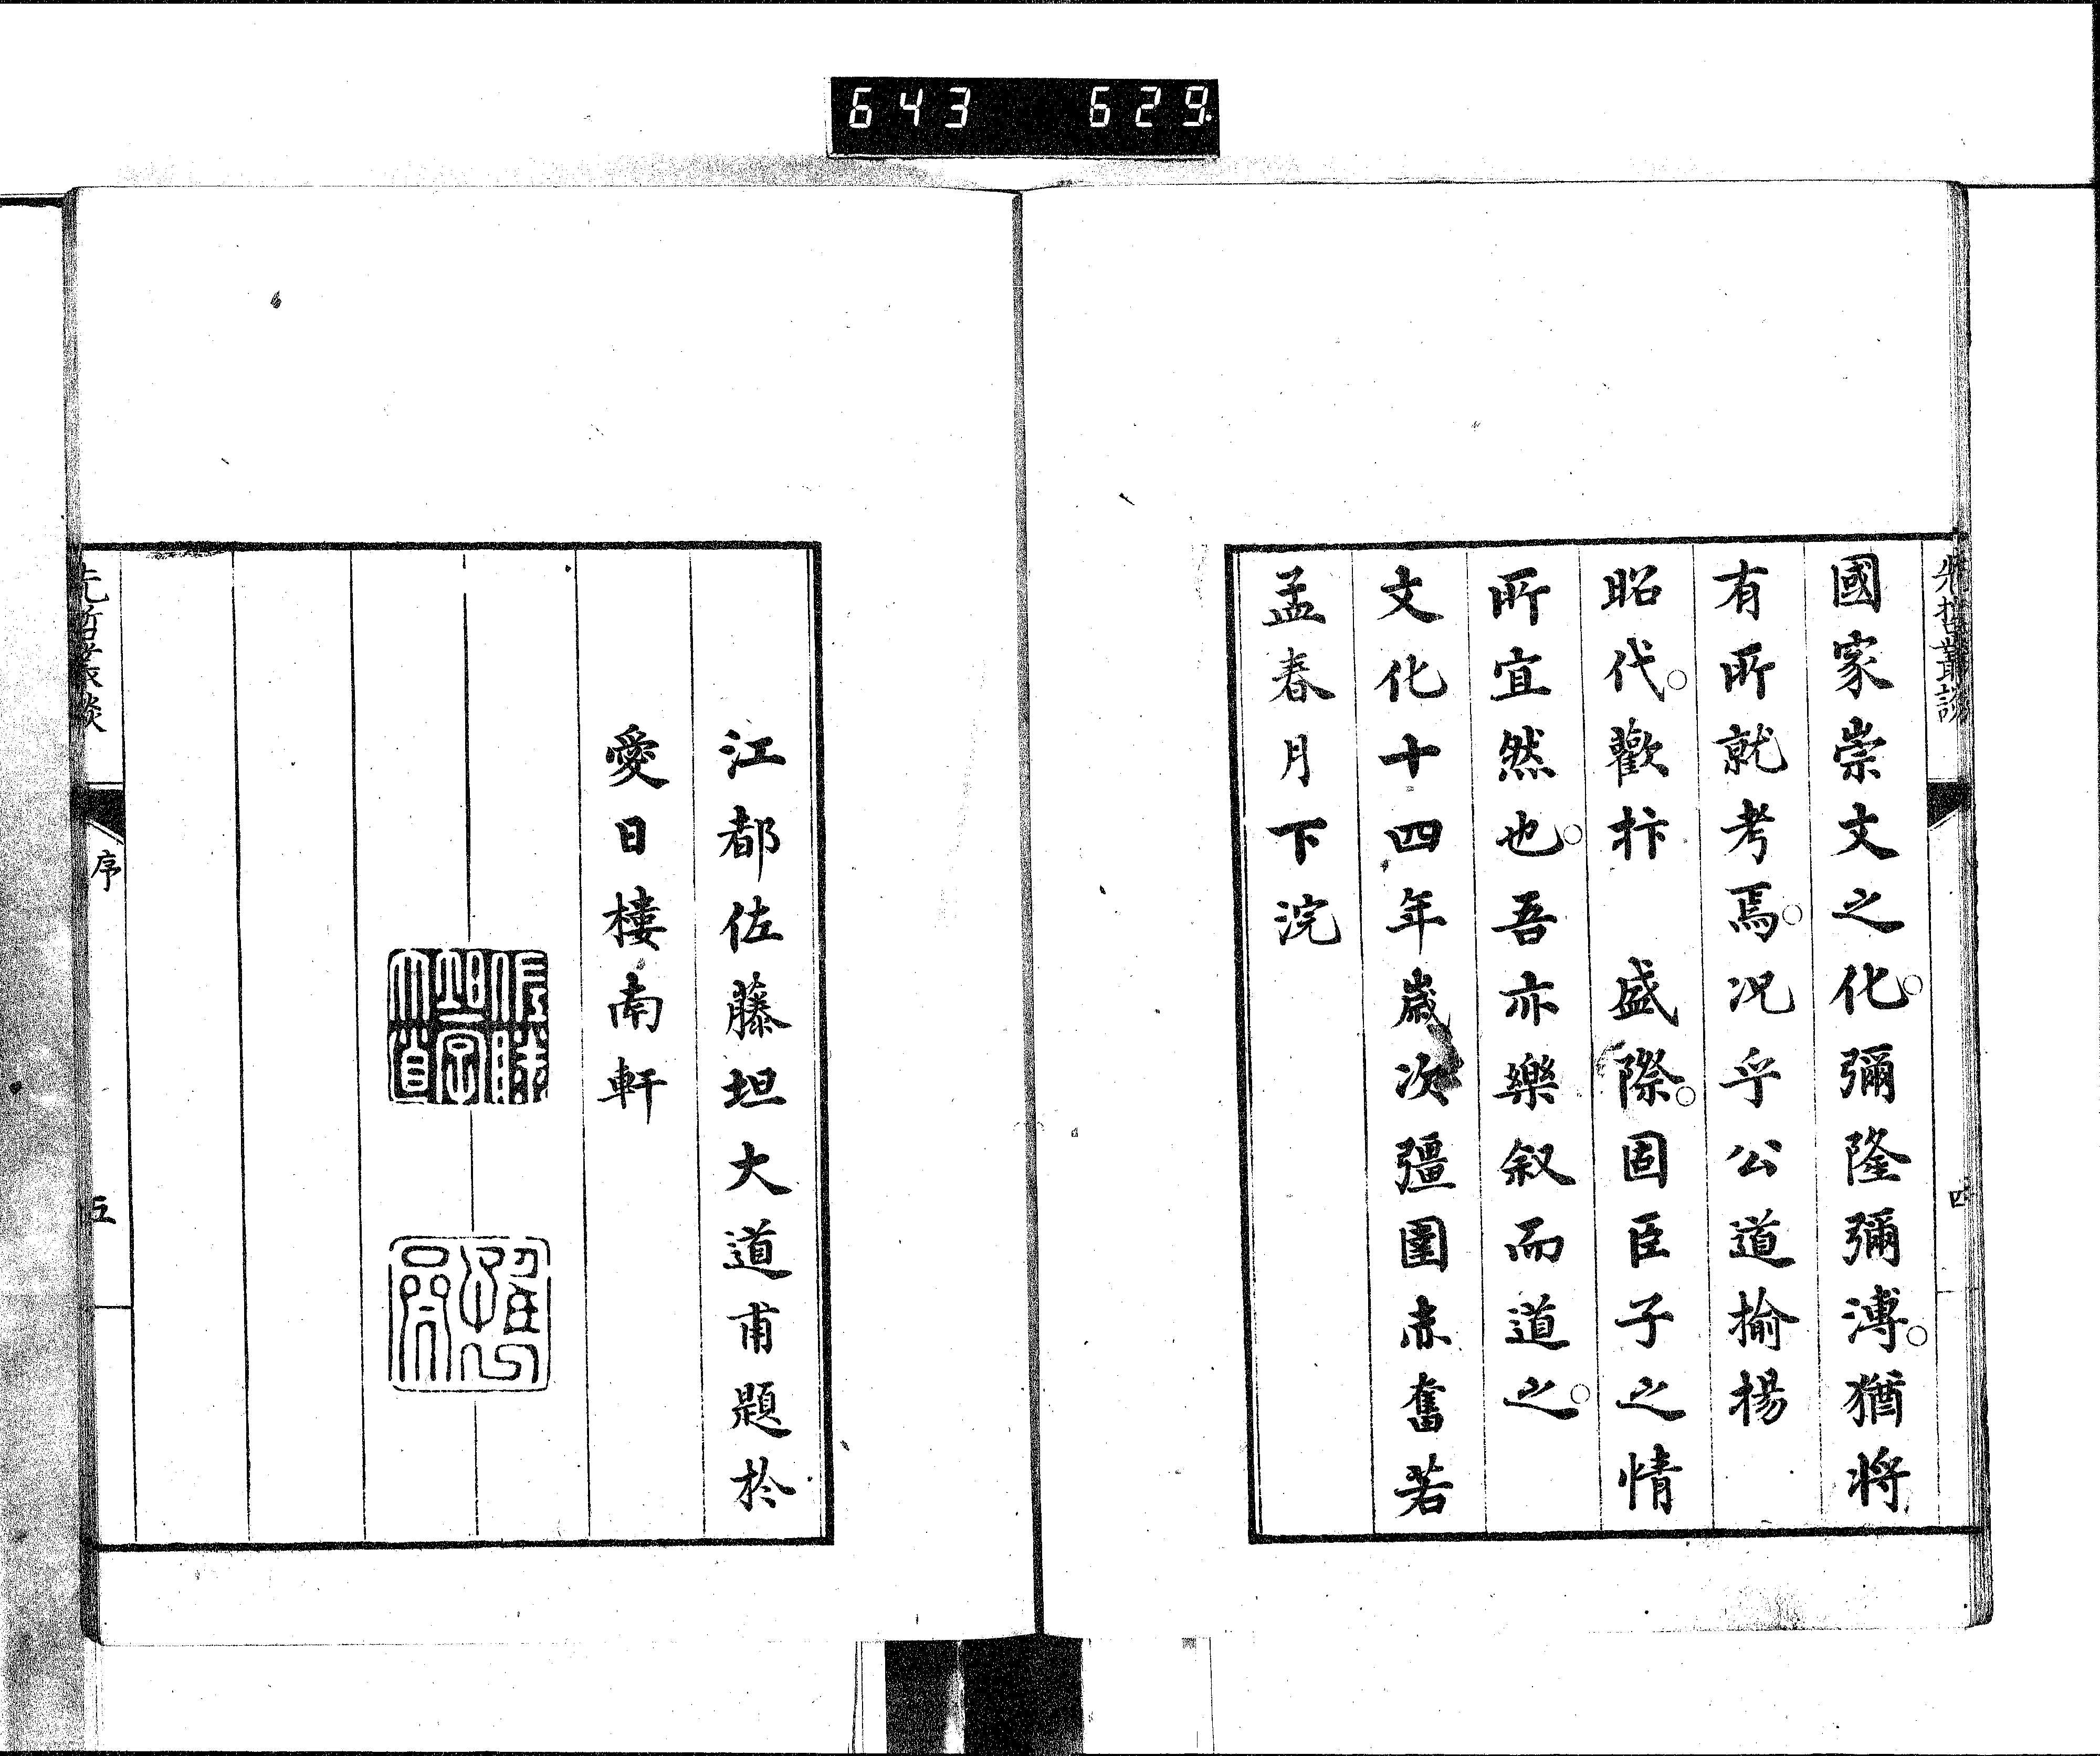 643 629
先哲叢談
四
國家崇文之化。彌隆彌溥。猶將
有所就考焉。况乎公道揄揚
昭代。歡抃　盛際。固臣子之情
所宜然也。吾亦樂叙而道之。
文化十四年歲次彊圉赤奮若
孟春月下浣
江都佐藤坦大道甫題於
愛日樓南軒
佐藤坦字大道
先哲叢談
序
五